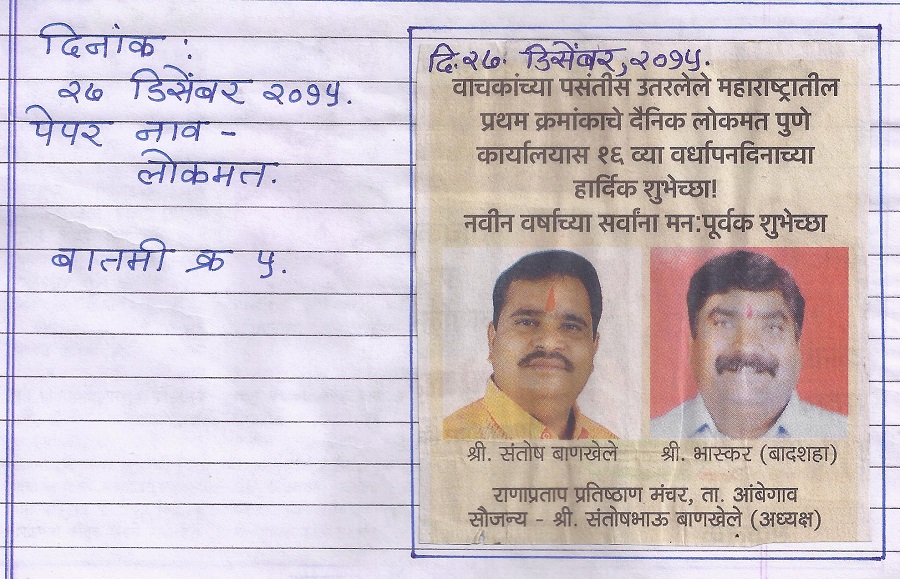 दिनांक :
२७ डिसेंबर २०१५.
पेपर नाव -
लोकमत.
बातमी क्र ५.
दि. २७. डिसेंबर, २०१५.
वाचकांच्या पसंतीस उतरलेले महाराष्ट्रातील
प्रथम क्रमांकाचे दैनिक लोकमत पुणे
कार्यालयास १६ व्या वर्धापनदिनाच्या
हार्दिक शुभेच्छा!
नवीन वर्षाच्या सर्वांना मन:पूर्वक शुभेच्छा
श्री. संतोष बाणखेले
श्री. भास्कर (बादशहा)
राणाप्रताप प्रतिष्ठाण मंचर, ता. आंबेगाव
सौजन्य - श्री. संतोषभाऊ बाणखेले (अध्यक्ष)